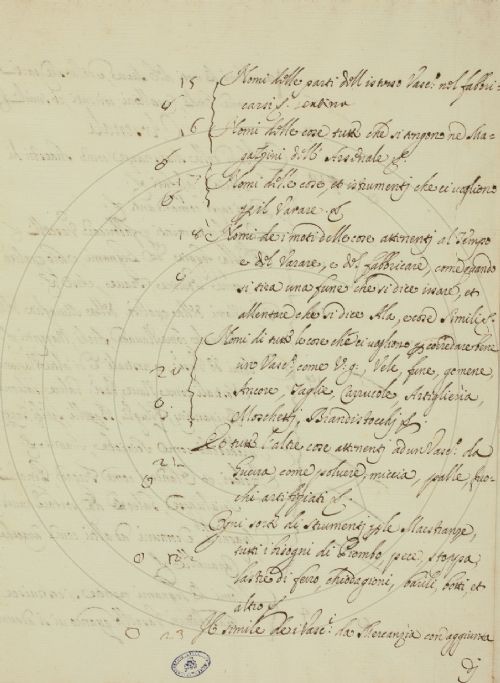 15 Nomi delle parti dell istesso Vasc.º nel fabbri-
carsi
16 Nomi delle cose tutte che si tengono ne Ma-
gazzini dell Arsenale &.
Nomi delle cose et istrumenti che ci vogliono
p il Varare &
18 Nomi de i moti delle cose attinenti al Tempo
e del Varare, e del fabbricare, come quando
si tira una fune che si dice issare, et
allentare che si dice Ala, e cose Simili &.
Nomi di tutte le cose che ci vogliono p corredare bene
un Vasc.º come V.g. Vele, fune, gomene,
Ancore, Taglie, Carrucole, Artiglieria,
Moschetti, Brandistocchi &.
Et tutte l'altre cose attinenti ad un Vasc.º da
Guerra, come polvere, miccia, palle, fuo-
chi artifiziati &.
Ogni sorte di strumenti p le Maestranze,
tutti i bisogni di Piombo, pece, stoppa,
lastre di ferro chiodagioni, barili, botti, et
altro &
23 Il simile de i Vasc.i da Mercanzia con aggiunta
di